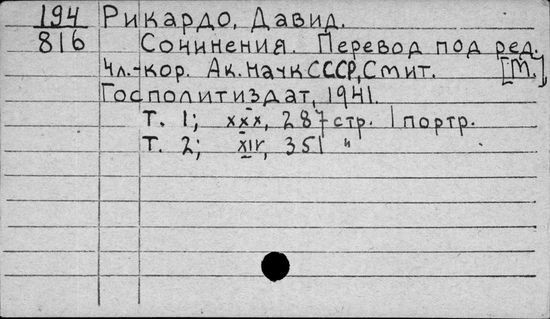 194 Рикардо, Давид.
816 Сочинения. Перевод под ред.
чл.-кор. Ак. Наук СССР, Смит. [М.]
Госполитиздат, 1941.
Т. 1; xxx, 287 стр. 1 портр.
Т. 2; xiv, 351 "